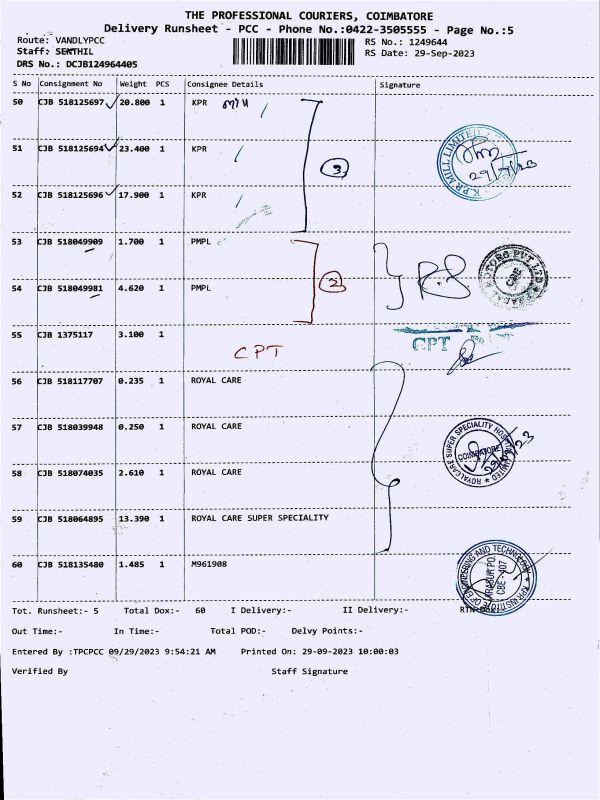 THE PROFESSIONAL COURIERS, COIMBATORE
Delivery Runsheet - PCC - Phone No.:0422-3505555 - Page No.:5
Route: VANDLYPCC RS No.: 1249644
Staff: SENTHIL RS Date: 29-Sep-2023
DRS No.: DCJB124964405
S No Consignment No Weight PCS Consignee Details Signature
50 CJB 518125697 20.800 1 KPR Mill
51 CJB 518125694 23.400 1 KPR
3
K.P.R MILL LIMITED
52 CJB 518125696 17.900 1 KPR
53 CJB 518049909 1.700 1 PMPL
MOTORS PVT LTD
CBE
54 CJB 518049981 4.620 1 PMPL
2
55 CJB 1375117 3.100 1
CPT
CPT
56 CJB 518117707 0.235 1 ROYAL CARE
57 CJB 518039948 0.250 1 ROYAL CARE
ROYALCARE SUPER SPECIALITY HOSPITAL LIMITED
COIMBATORE
58 CJB 518074035 2.610 1 ROYAL CARE
59 CJB 518064895 13.390 1 ROYAL CARE SUPER SPECIALITY
60 CJB 518135480 1.485 1 M961908
KPR INSTITUTE OF ENGINEERING AND TECHNOLOGY
ARASUR PO.
CBE - 407
Tot. Runsheet:- 5 Total Dox:- 60 I Delivery:- II Delivery:-
Out Time:- In Time:- Total POD:- Delvy Points:-
Entered By :TPCPCC 09/29/2023 9:54:21 AM Printed On: 29-09-2023 10:00:03
Verified By Staff Signature